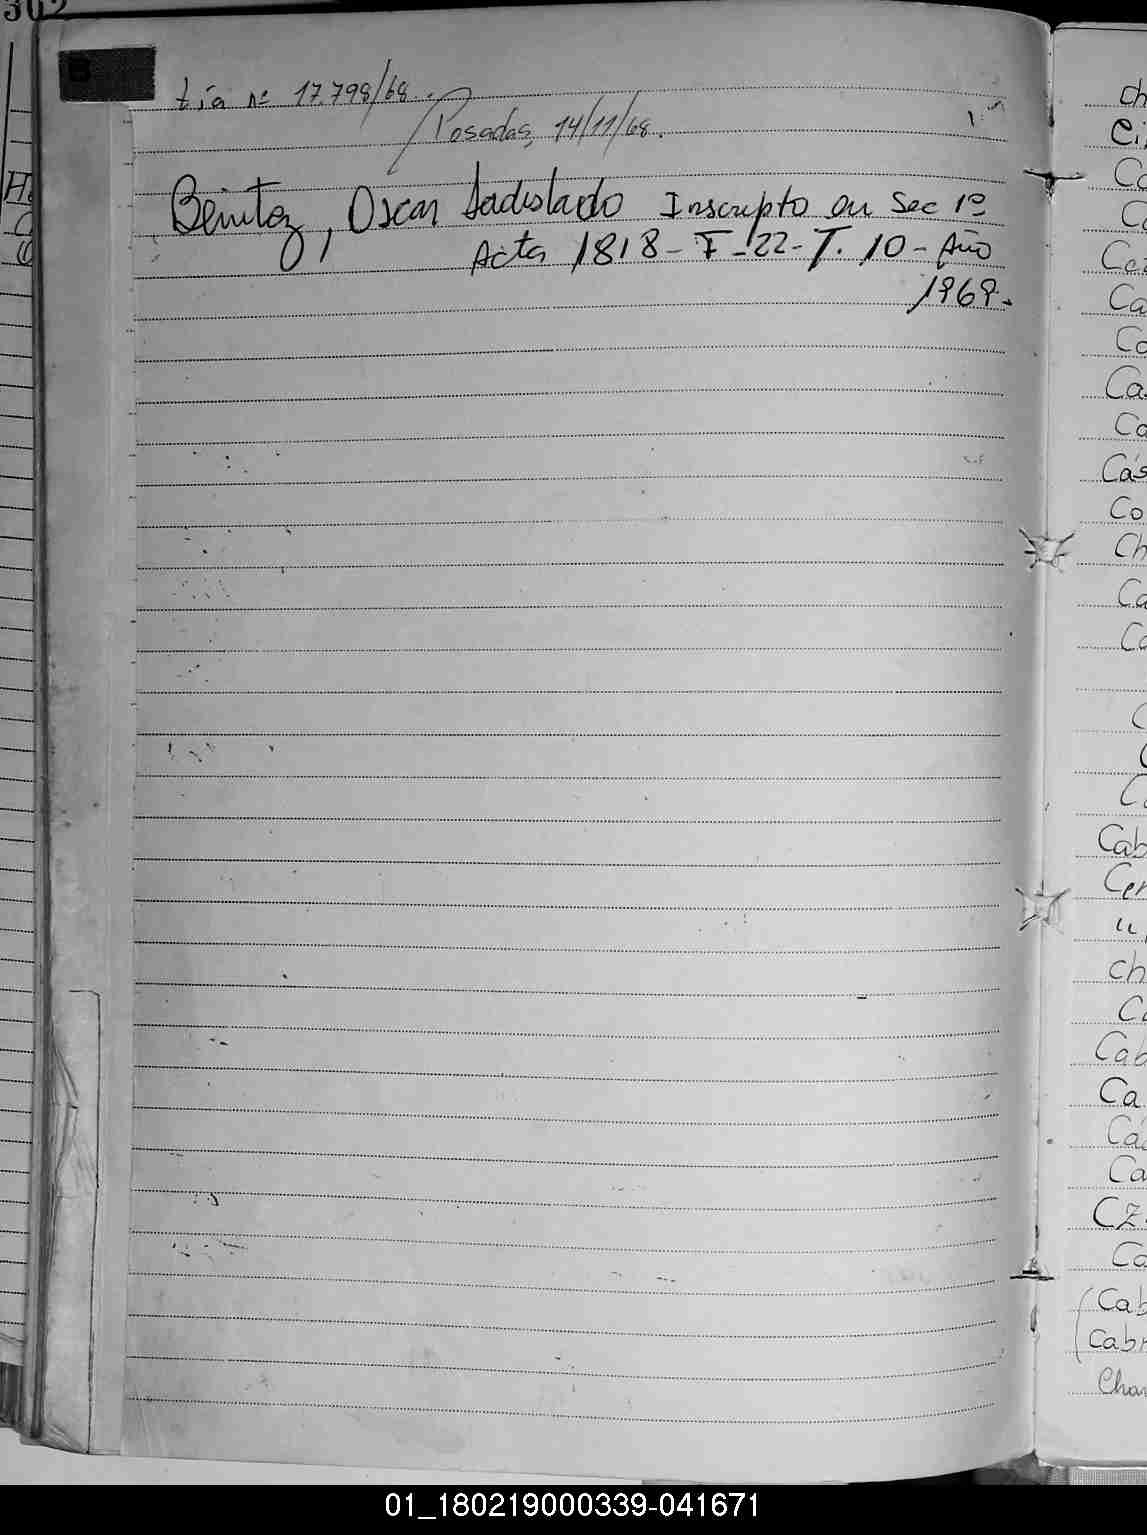 302
B
tía nº 17.798/68.
Posadas, 14/11/68.
Benitez, Oscar Ladislado Inscripto en Sec 1º
Acta 1818 - F - 22 - T. 10 - Año
1969.
ch
Ci
Co
Ca
Ca
Co
Ca
Co
Cás
Co
Ch
Ca
Co
C
C
C
Cab
Cer
ch
Cab
Ca
Cá
Ca
CZ
Ca
(Cab
Cabr
Cha
01_180219000339-041671